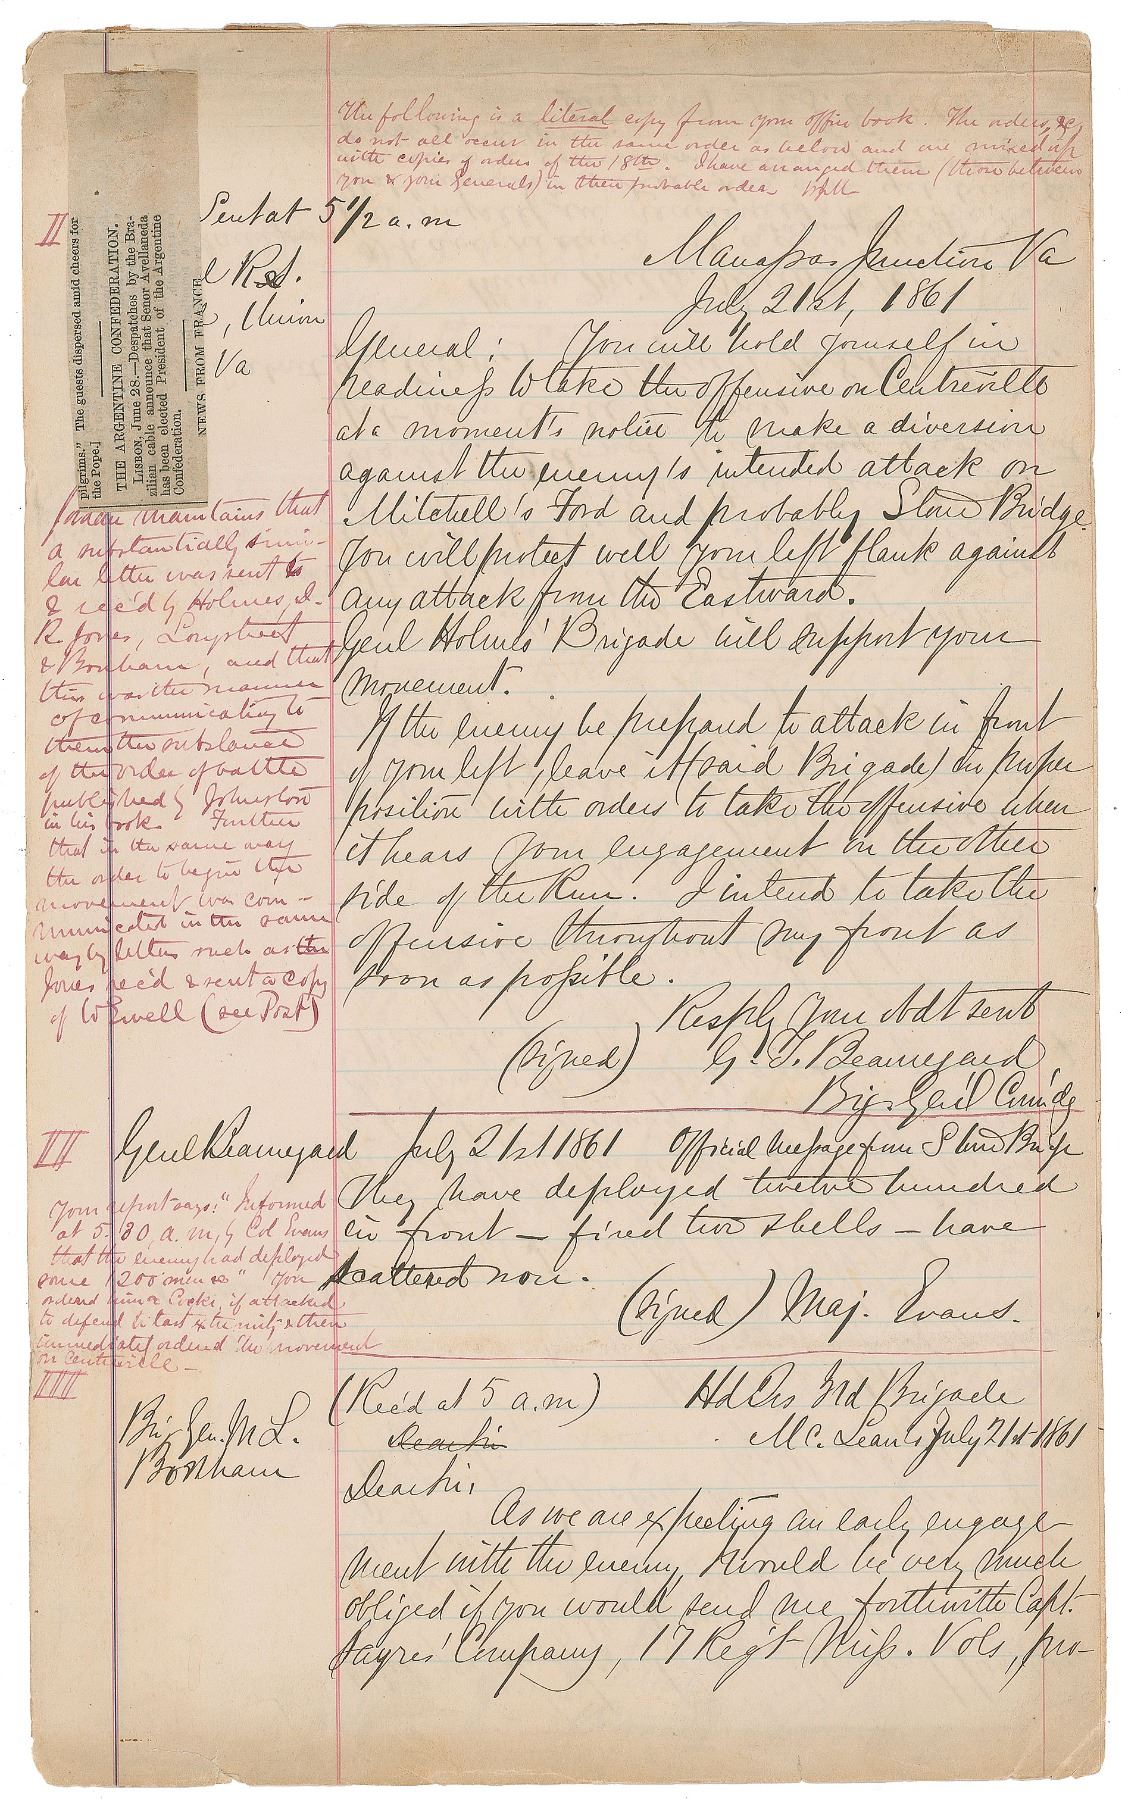 The following is a literal copy from your office book. The orders, &c,
do not all occur in the same order as below and are mixed up
with copies of orders of the 18th. I have arranged them (those between
you & your Generals) in their probable order.
II
Sent at 5 1/2 a. m
pilgrims." The guests dispersed amid cheers for
the Pope.]
THE ARGENTINE CONFEDERATION.
LISBON, June 28.—Despatches by the Bra-
zilian cable announce that Senor Avellaneda
has been elected President of the Argentine
Confederation.
NEWS FROM FRANCE
, Union
Va
Manassas Junction Va
July 21st, 1861
General: You will hold yourself in
readiness to take the offensive on Centreville
at a moment's notice to make a diversion
against the enemy's intended attack on
Mitchell's Ford and probably Stone Bridge.
You will protect well your left flank against
any attack from the Eastward.
Genl Holmes' Brigade will support your
movement.
If the enemy be prepared to attack in front
of your left, leave it (said Brigade) in proper
position with orders to take the offensive when
it hears your engagement on the other
side of the Run. I intend to take the
offensive throughout my front as
soon as possible.
Resply Your obdt servt
(signed) G. T. Beauregard
Brig. Gen'l Com'dg
Jordan maintains that
a substantially simi-
lar letter was sent to
& rec'd by Holmes, D.
R. Jones, Longstreet
& Bonham, and that
this was the manner
of communicating to
them the substance
of the order of battle
published by Johnston
in his book. Further
that in the same way
the order to begin the
movement was com-
municated in the same
way by letters such as the
Jones rec'd & sent a copy
of to Ewell (see Post)
III
Genl Beauregard July 21st 1861 Official Message from Stone Bridge
They have deployed twelve hundred
in front – fired two shells – have
scattered now.
(signed) Maj. Evans.
Your report says: "Informed
at 5.30, a. m, by Col Evans
that the enemy had deployed
some 1200 men &c" You
ordered him & Cocke, if attacked
to defend to last extremity & then
immediately ordered the movement
on Centreville –
IIII
Brig. Gen. M. L.
Bonham
(Rec'd at 5 a.m) Hd Qrs 3rd Brigade
Dear Sir Mc. Lean's July 21st 1861
Dear Sir,
As we are expecting an early engage-
ment with the enemy, I would be very much
obliged if you would send me forthwith Capt.
Sayres' Company, 17 Reg't Miss. Vols, pro-